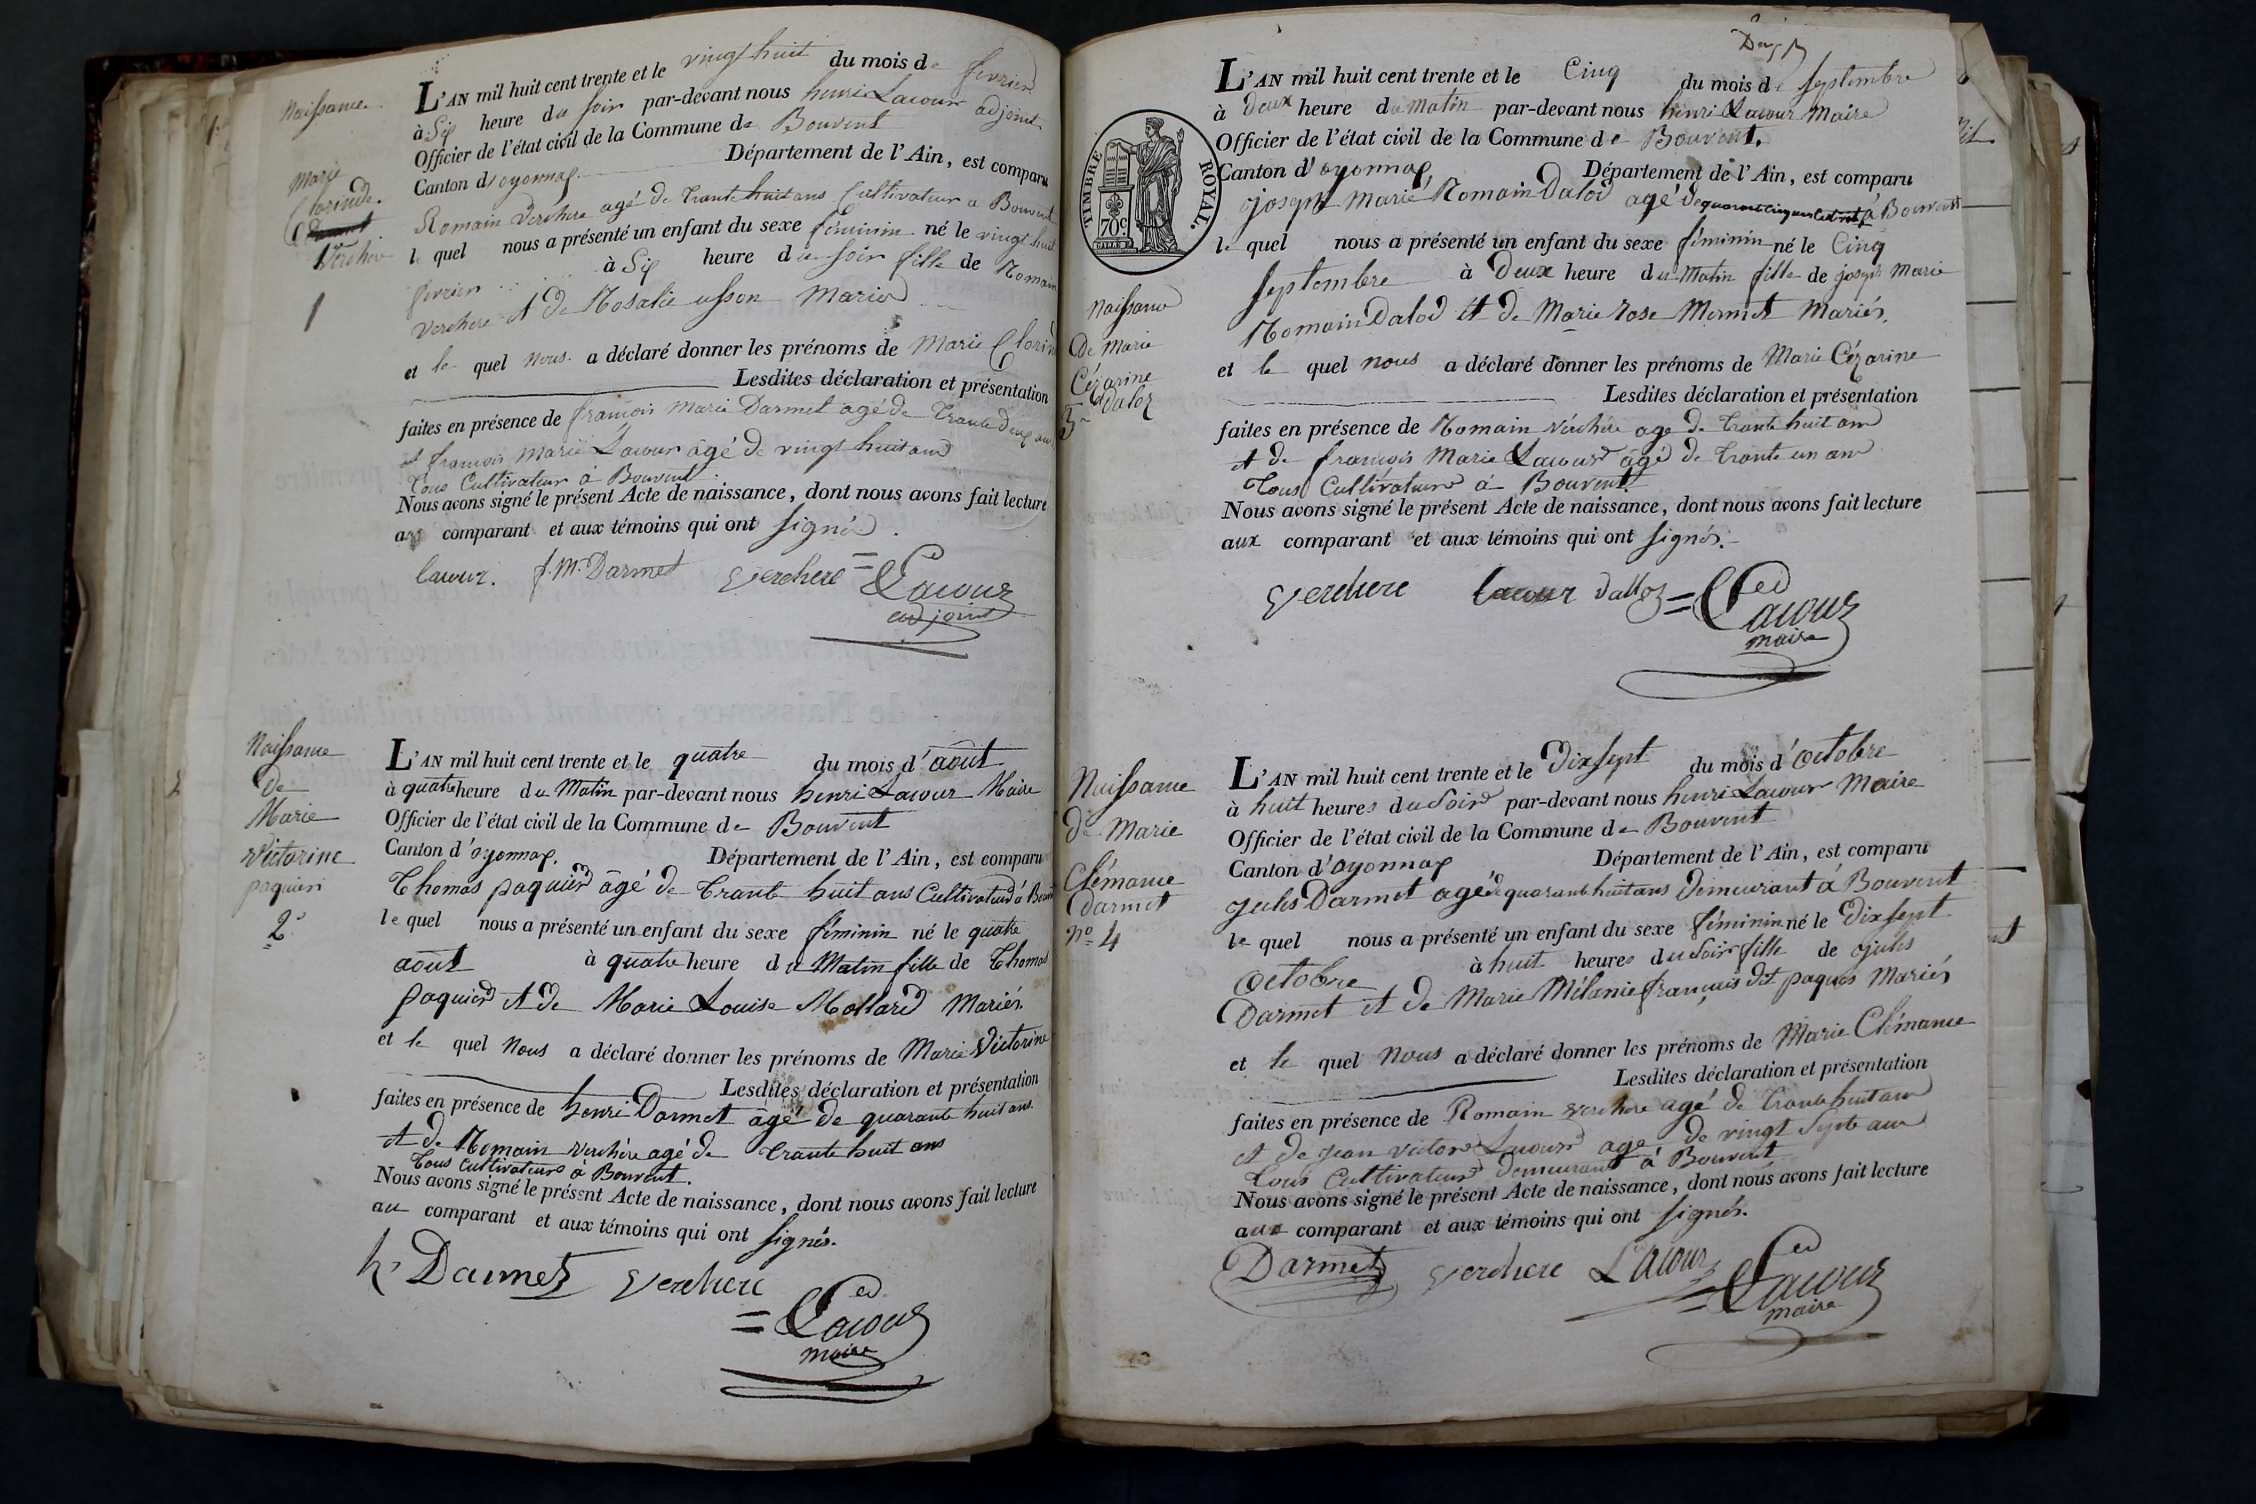 Naissance
Marie
Clorinde
Verchere
1
L'AN mil huit cent trente et le vingt huit du mois de fevrier
à Six heure du soir par-devant nous henri Lacour adjoint
Officier de l'état civil de la Commune de Bouvent
Canton d'oyonnax Département de l'Ain, est comparu
Romain Verchere agé de trante huit ans Cultivateur a Bouvent
le quel nous a présenté un enfant du sexe féminin né le vingt huit
fevrier à Six heure du soir fille de Romain
Verchere et de Rosalie usson Mariés
et le quel nous a déclaré donner les prénoms de Marie Clorin
Lesdites déclaration et présentation
faites en présence de françois Marie Darmet agé de trante deux ans
et françois Marie Lacour âgé de vingt huit ans
Tous Cultivateur à Bouvent
Nous avons signé le présent Acte de naissance, dont nous avons fait lecture
aux comparant et aux témoins qui ont signés.
lacour. f. M. Darmet verchere = Lacour
adjoint
Naissance
De
Marie
Victorine
paquier
2
L'AN mil huit cent trente et le quatre du mois d'août
à quatre heure du Matin par-devant nous henri Lacour Maire
Officier de l'état civil de la Commune de Bouvent
Canton d'oyonnax. Département de l'Ain, est comparu
Thomas paquier âgé de trante huit ans Cultivateur à
le quel nous a présenté un enfant du sexe féminin né le quatre
août à quatre heure du Matin fille de Thomas
paquier et de Marie Louise Mollard Mariés
et le quel nous a déclaré donner les prénoms de Marie Victorine
Lesdites déclaration et présentation
faites en présence de henri Darmet âgé de quarante huit ans
et de Romain verchère agé de trante huit ans
Tous Cultivateurs à Bouvent.
Nous avons signé le présent Acte de naissance, dont nous avons fait lecture
au comparant et aux témoins qui ont signés.
h. Darmet verchere
= Lacour
maire
TIMBRE ROYAL.
70c.
Naissance
De Marie
Cézarine
daloz
3
L'AN mil huit cent trente et le Cinq du mois de Septembre
à deux heure du matin par-devant nous henri Lacour Maire
Officier de l'état civil de la Commune de Bouvent.
Canton d'oyonnax, Département de l'Ain, est comparu
joseph Marie Romain Dalod agé de à Bouvent
le quel nous a présenté un enfant du sexe féminin né le Cinq
Septembre à Deux heure du Matin fille de joseph Marie
Romain Dalod et de Marie rose Mermet Mariés.
et le quel nous a déclaré donner les prénoms de Marie Cézarine
Lesdites déclaration et présentation
faites en présence de Romain Vérchère age de trante huit ans
et de françois Marie Lacour âgé de trante un ans
Tous Cultivateurs à Bouvent.
Nous avons signé le présent Acte de naissance, dont nous avons fait lecture
aux comparant et aux témoins qui ont signés.
verchere lacour dalloz = Lacour
maire
Naissance
de Marie
Clémance
Darmet
no 4
L'AN mil huit cent trente et le Dix sept du mois d'octobre
à huit heures du soir par-devant nous henri Lacour Maire
Officier de l'état civil de la Commune de Bouvent
Canton d'oyonnax Département de l'Ain, est comparu
jules Darmet agé de quarante huit ans Demeurant à Bouvent
le quel nous a présenté un enfant du sexe féminin né le Dix sept
octobre à huit heures du soir fille de jules
Darmet et de Marie Mélanie français dit paquis Mariés
et le quel nous a déclaré donner les prénoms de Marie Clémance
Lesdites déclaration et présentation
faites en présence de Romain Verchere agé de trante huit ans
et de jean victor Lacour age de vingt Septe ans
Tous Cultivateur demeurant à Bouvent
Nous avons signé le présent Acte de naissance, dont nous avons fait lecture
aux comparant et aux témoins qui ont signés.
Darmet verchere Lacour = Lacour
maire